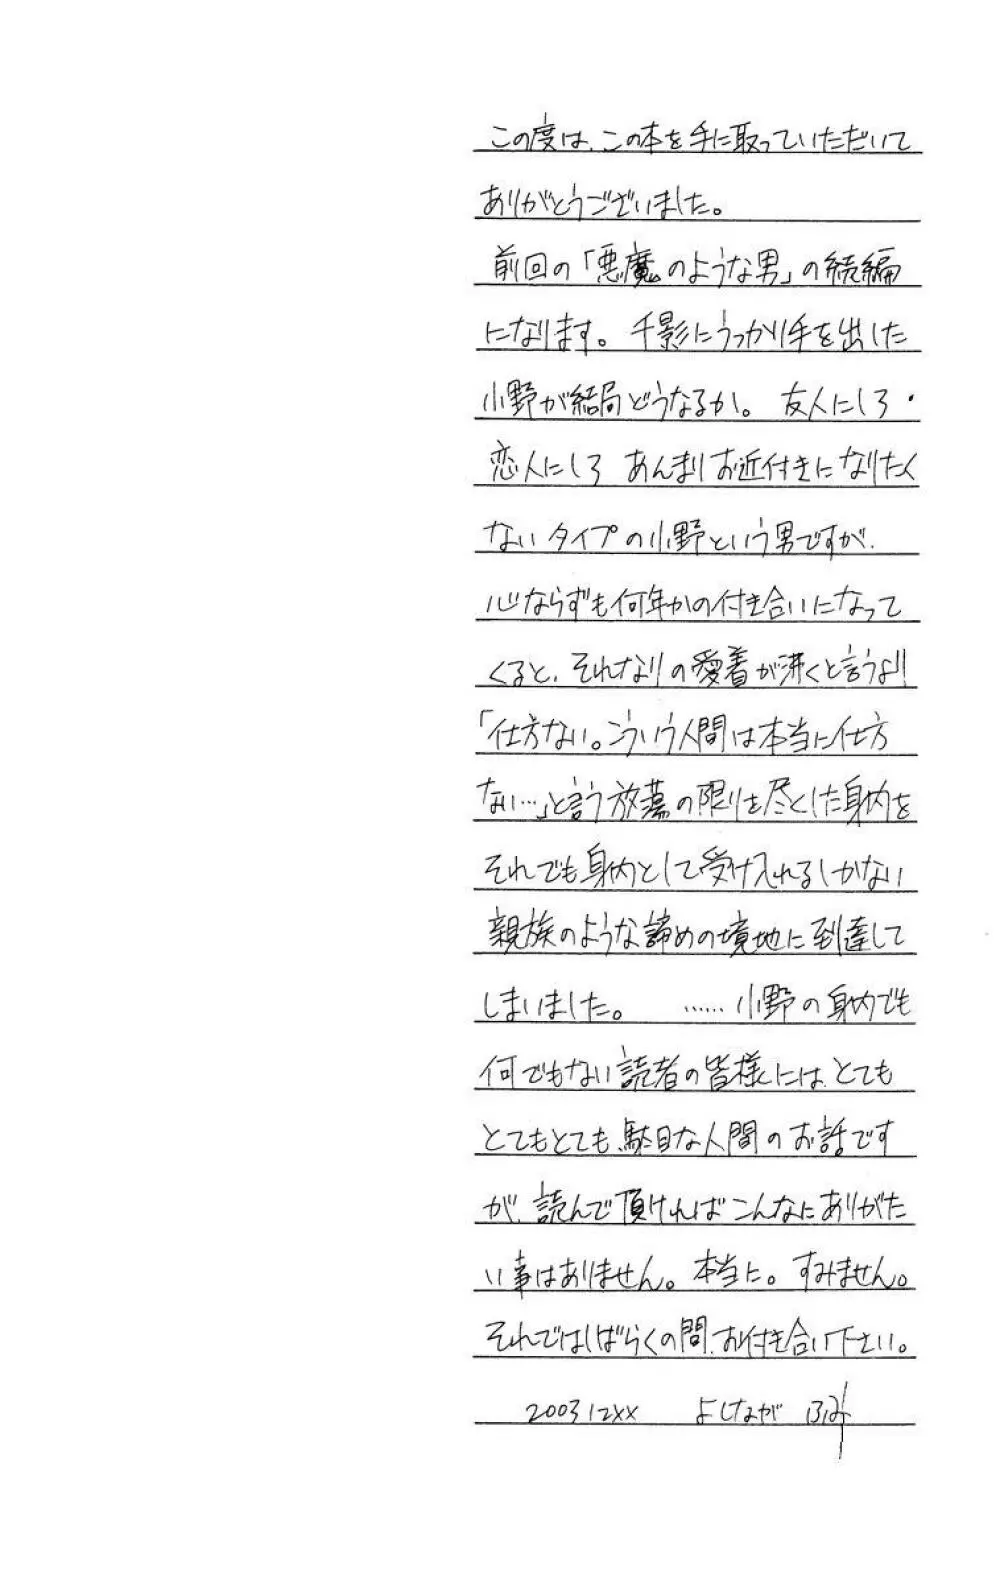 この度は、この本を手に取っていただいて
ありがとうございました。
前回の「悪魔のような男」の続編
になります。千影にうっかり手を出した
小野が結局どうなるか。友人にしろ・
恋人にしろ あんまりお近付きになりたく
ないタイプの小野という男ですが、
心ならずも何年かの付き合いになって
くると、それなりの愛着が沸くと言うより
「仕方ない。こういう人間は本当に仕方
ない…」と言う放蕩の限りを尽くした身内を
それでも身内として受け入れるしかない
親族のような諦めの境地に到達して
しまいました。 ……小野の身内でも
何でもない読者の皆様には、とても
とてもとても、駄目な人間のお話です
が、読んで頂ければこんなにありがた
い事はありません。本当に。すみません。
それではしばらくの間、お付き合い下さい。
2003 12xx よしながふみ